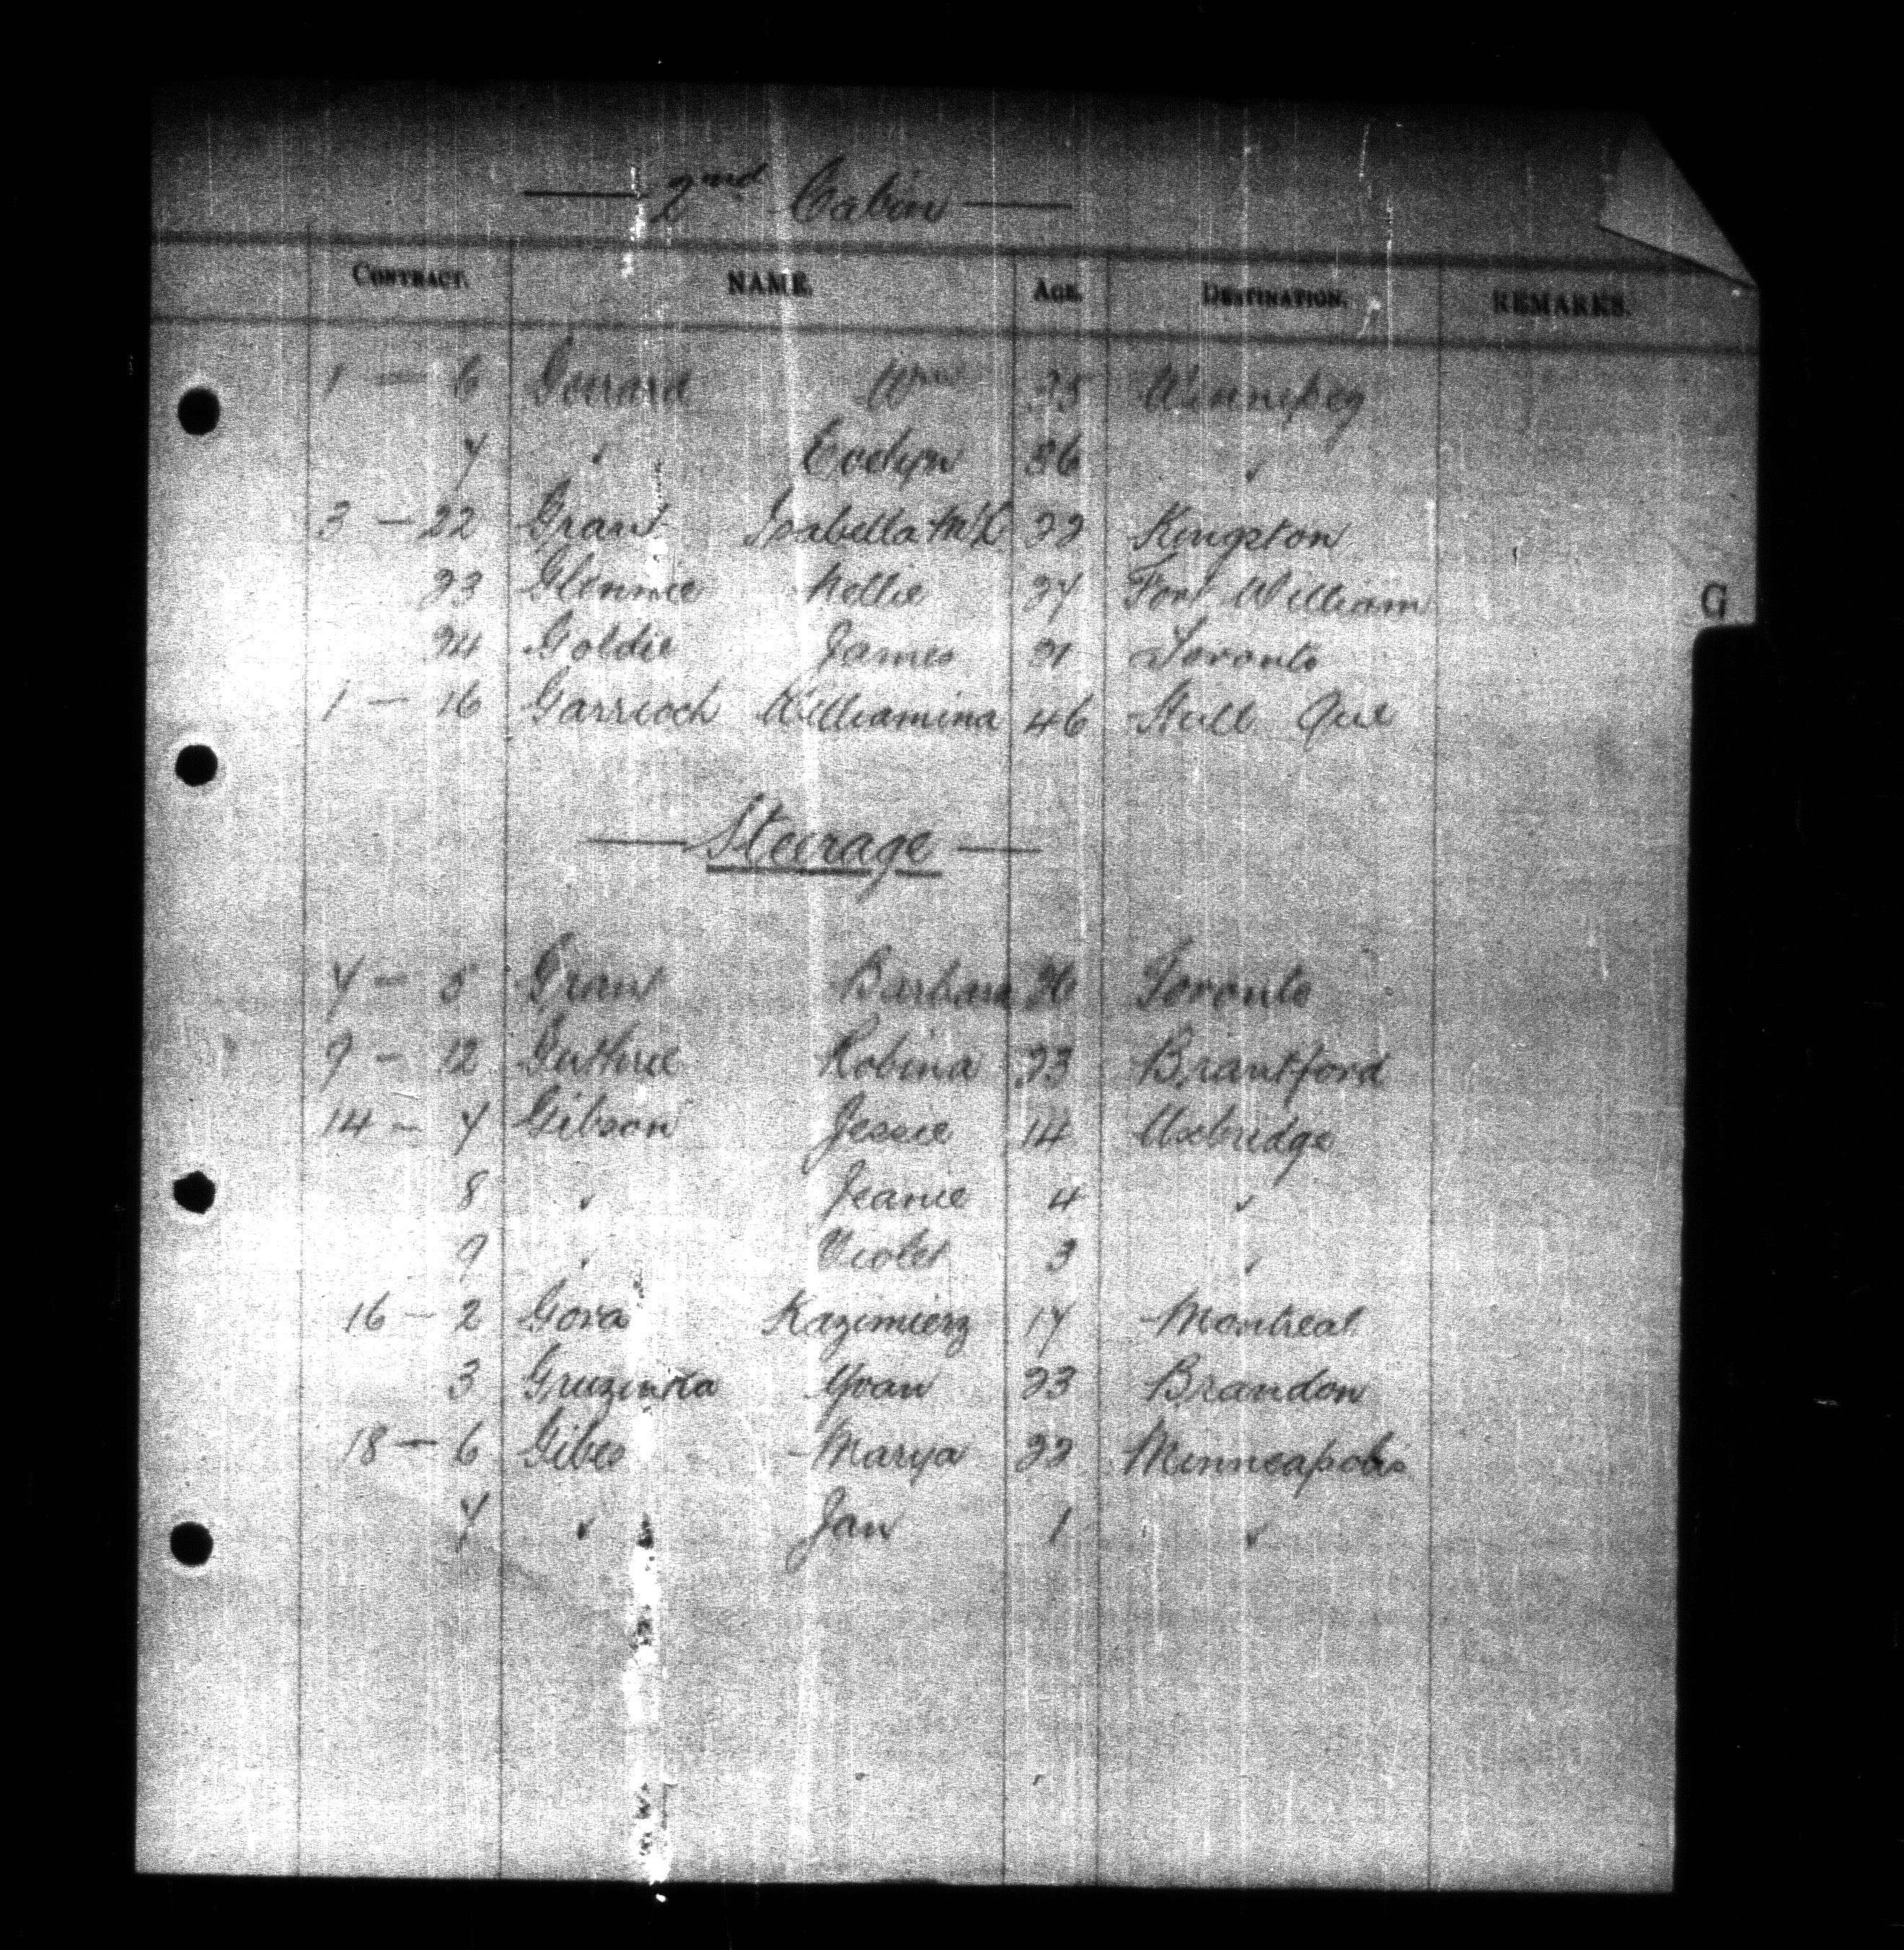 — 2nd Cabin —
CONTRACT. NAME. AGE. DESTINATION. REMARKS.
1 — 6 Gerrard Wm 35 Winnipeg
7 " Evelyn 36 "
3 — 22 Grant Isabella McL 22 Kingston
23 Glennie Nellie 27 Fort William
G
24 Goldie James 21 Toronto
1 — 16 Garrioch Williamina 46 Hull Que
— Steerage —
7 — 5 Grant Barbara 26 Toronto
9 — 12 Guthrie Robina 23 Brantford
14 — 7 Gibson Jessie 14 Uxbridge
8 " Jeanie 4 "
9 " Violet 3 "
16 — 2 Gora Kazimierz 17 Montreal
3 Yvan 23 Brandon
18 — 6 Marya 22 Minneapolis
7 " Jan 1 "